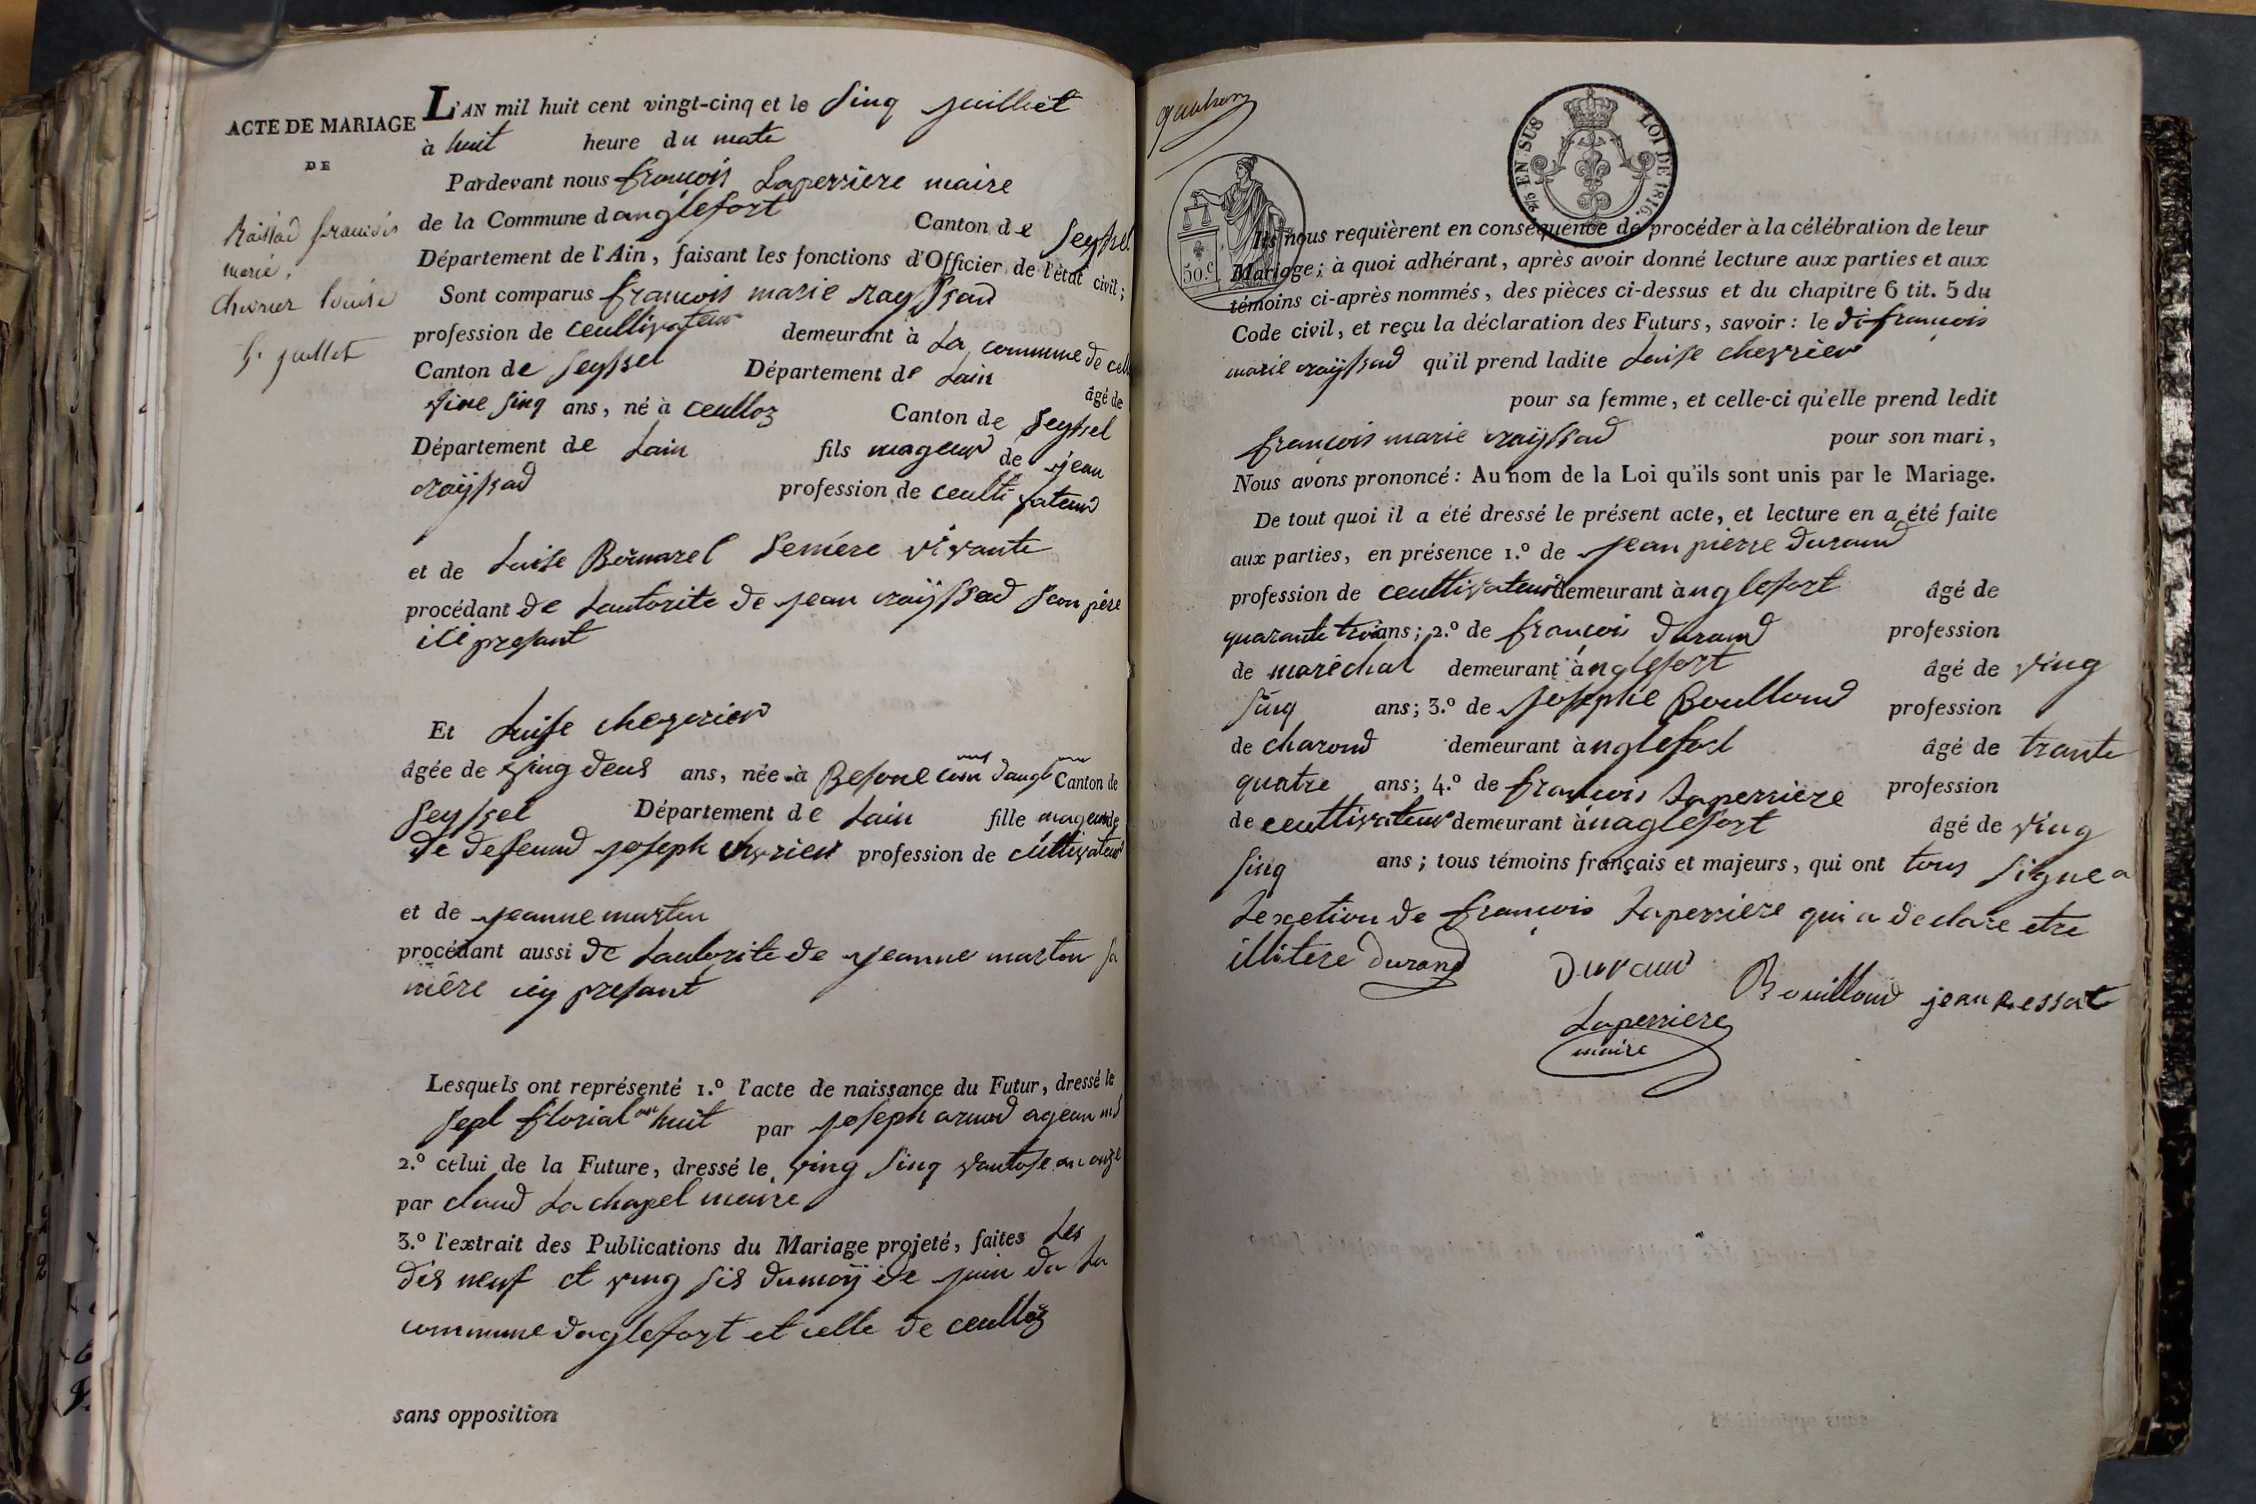 ACTE DE MARIAGE
DE
Raissad francois
marie.
Chevrier louise
5. juillet
L'AN mil huit cent vingt-cinq et le sinq juilliet
à huit heure du mate
Pardevant nous françois Laperriere maire
de la Commune d anglefort Canton de Seyssel
Département de l'Ain, faisant les fonctions d'Officier de l'état civil;
Sont comparus françois marie rayssad
profession de ceullivateur demeurant à La commune de cell
Canton de Seyssel Département de Lain âgé de
vint sinq ans, né à ceulloz Canton de Seyssel
Département de Lain fils mageur de jean
raÿssad profession de ceultivateur
et de Luise Bernarel veniere vivante
procédant de Lautorite de jean raÿssad son père
ici presant
Et Luise chevrier
âgée de ving deus ans, née à Besone com d'angl Canton de
Seyssel Département de Lain fille mageur de
de defeund joseph chevrier profession de cultivateur
et de jeanne marten
procédant aussi de Lautorite de jeanne marten sa
mère icy presant
Lesquels ont représenté 1.º l'acte de naissance du Futur, dressé le
sept florial an huit par joseph arnod ageaun m
2.º celui de la Future, dressé le ving sinq vantose an onze
par claud La chapel maire
3.º l'extrait des Publications du Mariage projeté, faites Les
dis neuf et ving sis du moÿ de juin da La
commune daglefort et celle de ceulloz
sans opposition
2/10 EN SUS LOI DE 1816.
50.c
Ils nous requièrent en conséquence de procéder à la célébration de leur
Mariage; à quoi adhérant, après avoir donné lecture aux parties et aux
témoins ci-après nommés, des pièces ci-dessus et du chapitre 6 tit. 5 du
Code civil, et reçu la déclaration des Futurs, savoir: le di françois
marie raÿssad qu'il prend ladite Luise chevrier
pour sa femme, et celle-ci qu'elle prend ledit
françois marie raÿssad pour son mari,
Nous avons prononcé: Au nom de la Loi qu'ils sont unis par le Mariage.
De tout quoi il a été dressé le présent acte, et lecture en a été faite
aux parties, en présence 1.º de jean pierre durand
profession de ceultivateur demeurant à nglefort âgé de
quarante trois ans; 2.º de françois durand profession
de maréchal demeurant à nglefort âgé de ving
sinq ans; 3.º de josephe Boulloud profession
de charond demeurant à nglefort âgé de trante
quatre ans; 4.º de françois Laperriere profession
de ceultivateur demeurant à naglefort âgé de ving
sinq ans; tous témoins français et majeurs, qui ont tous signe a
Lexcetion de françois Laperriere qui a declare etre
illitere durand Durand Bouilloud jean Ressat
Laperriere
maire